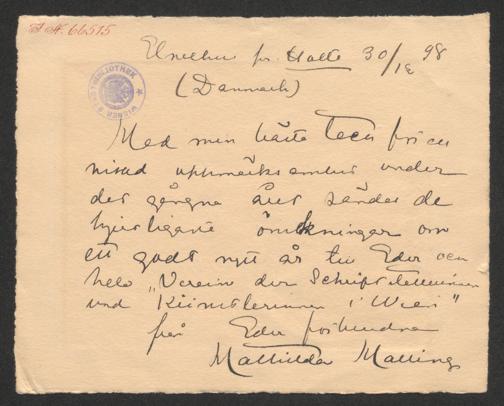 I.N. 66515
pr. Holte 30/12 98
(Danmark)
Med min bästa Tack för en
visad uppmärksamhet under
det gångna året sändes de
hjertligaste önskningar om
ett godt nytt år till Eder och
hela "Verein der Schriftstellerinnen
und Künstlerinnen i Wien"
från Eder förbundna
Mathilda Malling